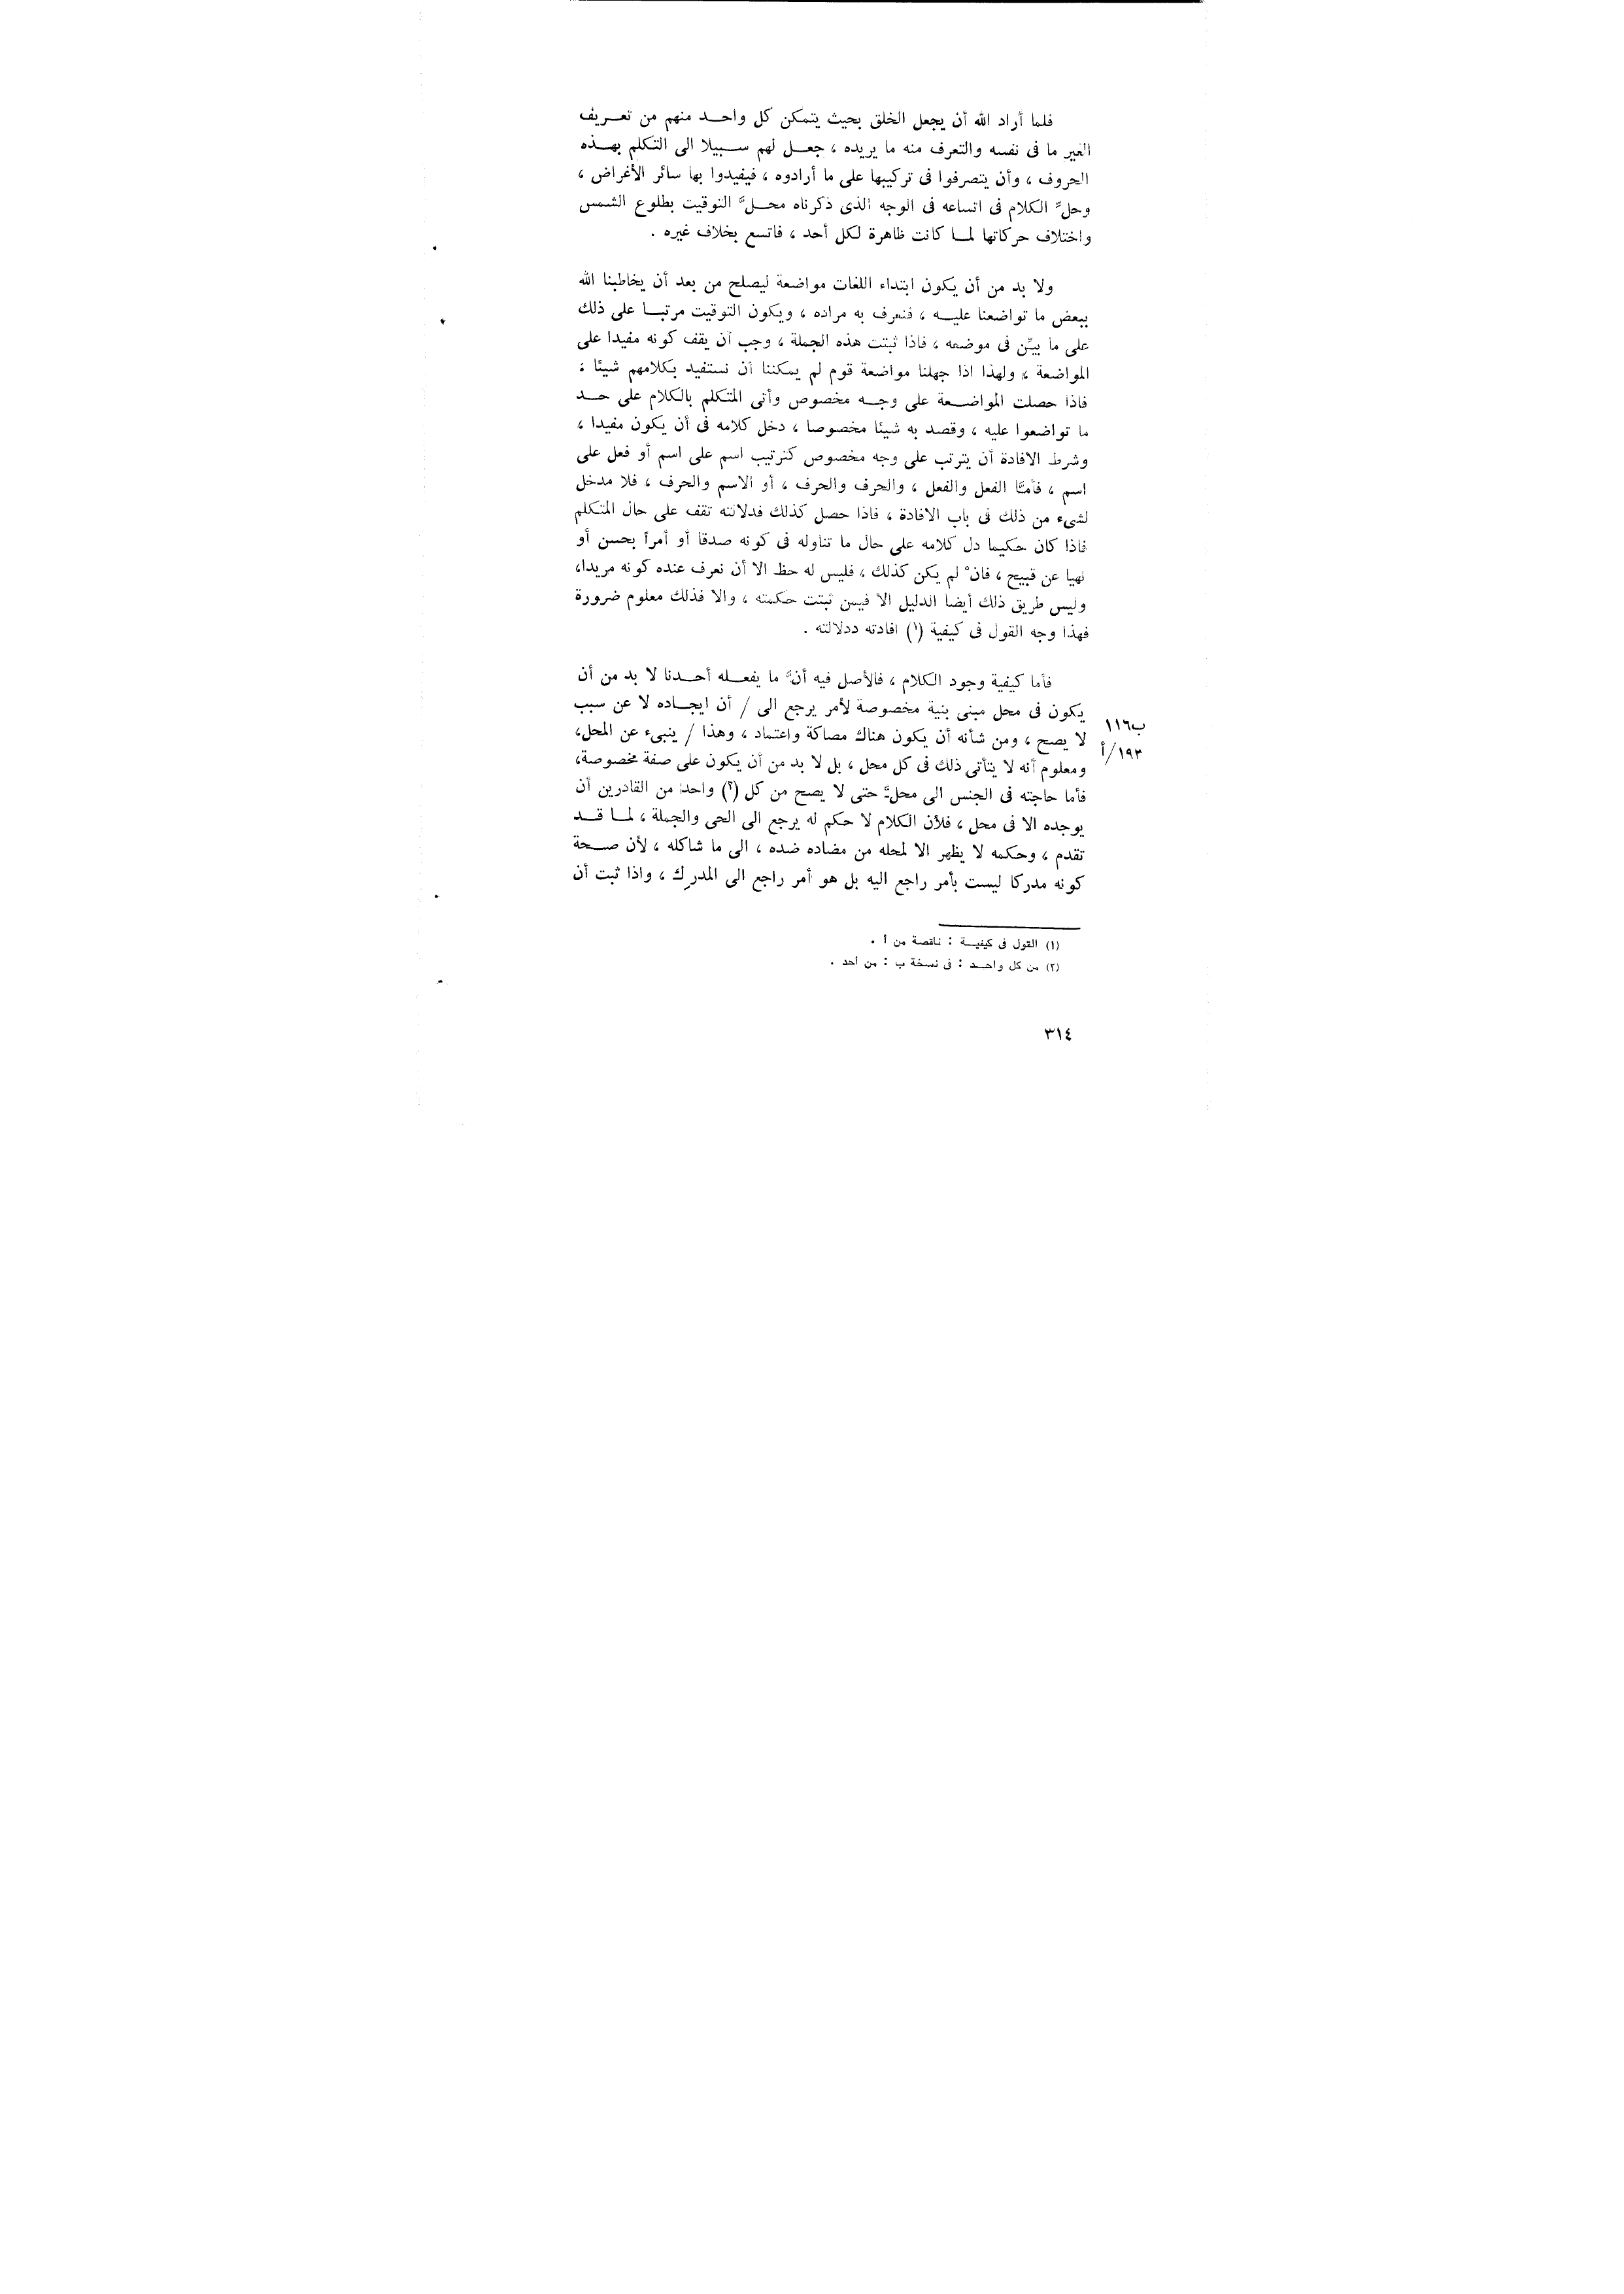 فلما أراد الله أن يجعل الخلق بحيث يتمكن كل واحــد منهم من تعــريف
الغير ما فى نفسه والتعرف منه ما يريده ، جعــل لهم ســبيلا الى التكلم بهــذه
الحروف ، وأن يتصرفوا فى تركيبها على ما أرادوه ، فيفيدوا بها سائر الأغراض ،
وحلَّ الكلام فى اتساعه فى الوجه الذى ذكرناه محــلَّ التوقيت بطلوع الشمس
واختلاف حركاتها لمــا كانت ظاهرة لكل أحد ، فاتسع بخلاف غيره .
ولا بد من أن يكون ابتداء اللغات مواضعة ليصلح من بعد أن يخاطبنا الله
ببعض ما تواضعنا عليــه ، فنعرف به مراده ، ويكون التوقيت مرتبــا على ذلك
على ما بيِّن فى موضعه ، فاذا ثبتت هذه الجملة ، وجب أن يقف كونه مفيدا على
المواضعة ، ولهذا اذا جهلنا مواضعة قوم لم يمكننا أن نستفيد بكلامهم شيئا :
فاذا حصلت المواضــعة على وجــه مخصوص وأتى المتكلم بالكلام على حــد
ما تواضعوا عليه ، وقصد به شيئا مخصوصا ، دخل كلامه فى أن يكون مفيدا ،
وشرط الافادة أن يترتب على وجه مخصوص كترتيب اسم على اسم أو فعل على
اسم ، فأمتَّا الفعل والفعل ، والحرف والحرف ، أو الاسم والحرف ، فلا مدخل
لشىء من ذلك فى باب الافادة ، فاذا حصل كذلك فدلالته تقف على حال المتكلم
فاذا كان حكيما دل كلامه على حال ما تناوله فى كونه صدقا أو أمراً بحسن أو
نهيا عن قبيح ، فانْ لم يكن كذلك ، فليس له حظ الا أن نعرف عنده كونه مريدا،
وليس طريق ذلك أيضا الدليل الا فيمن ثبتت حكمته ، والا فذلك معلوم ضرورة
فهذا وجه القول فى كيفية (١) افادته ددلالته .
فأما كيفية وجود الكلام ، فالأصل فيه أنَّ ما يفعــله أحــدنا لا بد من أن
يكون فى محل مبنى بنية مخصوصة لأمر يرجع الى / أن ايجــاده لا عن سبب
ب١١٦
لا يصح ، ومن شأنه أن يكون هناك مصاكة واعتماد ، وهذا / ينبىء عن المحل،
١٩٣/أ
ومعلوم أنه لا يتأتى ذلك فى كل محل ، بل لا بد من أن يكون على صفة مخصوصة،
فأما حاجته فى الجنس الى محلَّ حتى لا يصح من كل (٢) واحد من القادرين أن
يوجده الا فى محل ، فلأن الكلام لا حكم له يرجع الى الحى والجملة ، لمــا قــد
تقدم ، وحكمه لا يظهر الا لمحله من مضاده ضده ، الى ما شاكله ، لأن صــحة
كونه مدركا ليست بأمر راجع اليه بل هو أمر راجع الى المدرِك ، واذا ثبت أن
(١) القول فى كيفيــة : ناقصة من أ .
(٢) من كل واحــد : فى نسخة ب : من أحد .
٣١٤